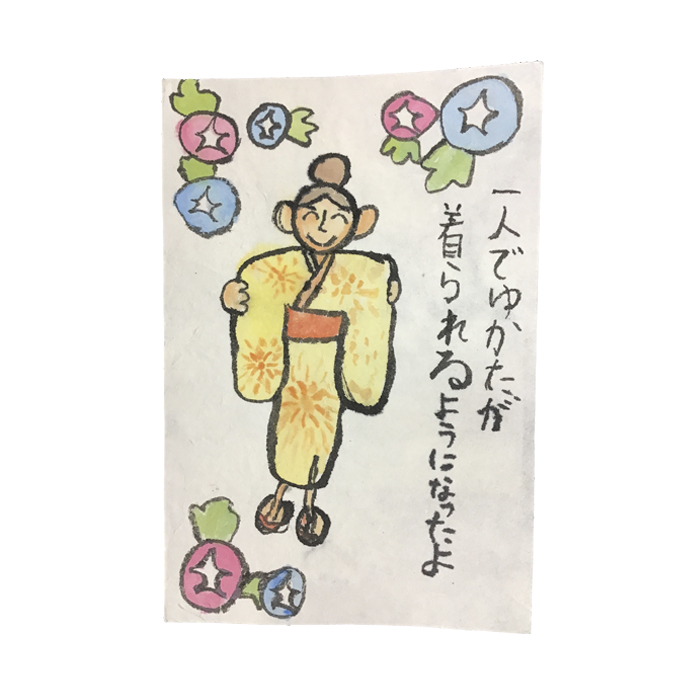 一人でゆかたが
着られるようになったよ